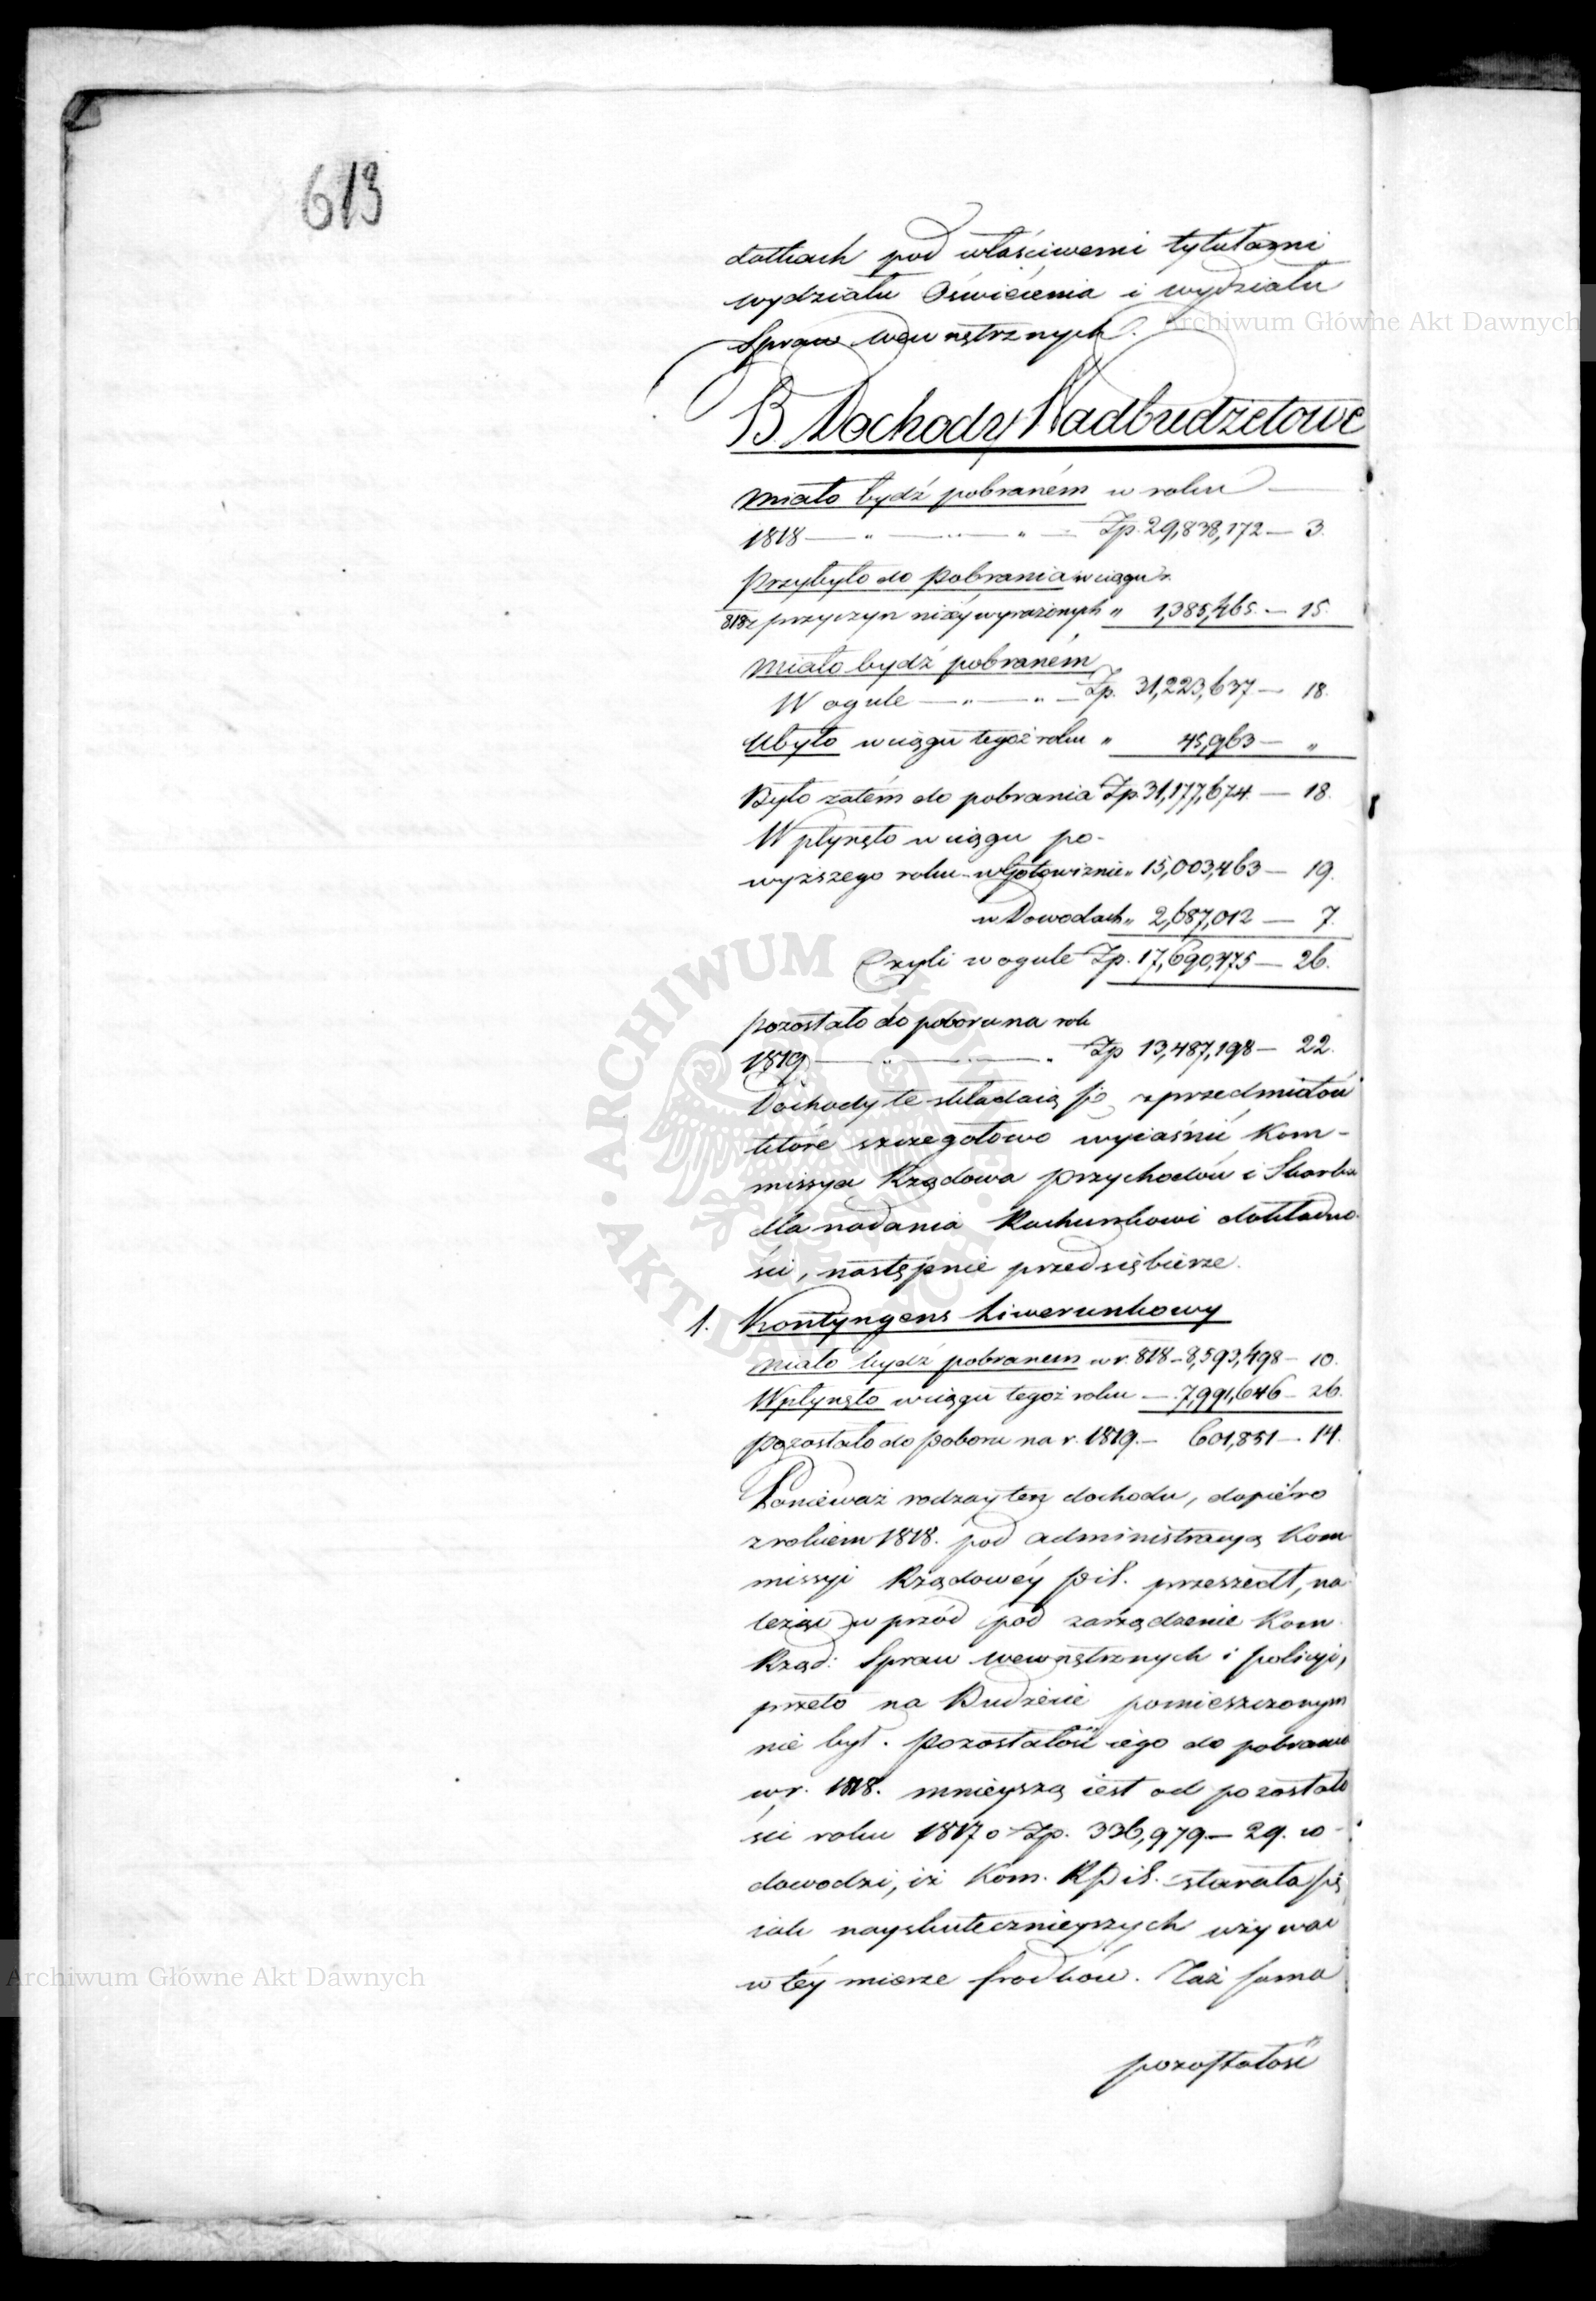 613
datkach pod właściwemi tytułami
wydziału Oświecenia i wydziału
Spraw wewnętrznych.
B. Dochody Nadbudżetowe
Miało bydź pobraném w roku
1818 — " — " — Zp. 29,838,172 — 3.
Przybyło do pobrania w ciągu r.
818 z przyczyn niżéy wyrażonych " 1,385,465. — 15.
Miało bydź pobraném
W ogule — " — " — Zp. 31,223,637 — 18.
Ubyło w ciągu tegoż roku " 45,963 — "
Było zatém do pobrania Zp. 31,177,674. — 18.
Wpłynęło w ciągu po-
wyższego roku w Gotowiznie " 15,003,463 — 19.
w Dowodach " 2,687,012 — 7.
Czyli w ogule Zp. 17,690,475 — 26.
pozostało do poboru na rok
1819 — " — " Zp 13,487,198 — 22.
Dochody te składaią się z przedmiotów
które szczegołowo wyiaśnić Kom-
missya Rządowa przychodów i Skarbu
dla nadania Rachunkowi dokładno-
ści, następnie przedsiębierze.
1. Kontyngens Liwerunkowy
Miało bydź pobranem w r. 818 - 8,593,498 - 10.
Wpłynęło w ciągu tegoż roku — 7,991,646 - 26.
Pozostało do Poboru na r. 1819. — 601,851 — 14.
Ponieważ rodzay ten dochodu, dopiéro
z rokiem 1818. pod administracyą Kom
missyi Rządowéy P i S. przeszedł, na
leżąc w przód pod zarządzenie Kom
Rząd: Spraw wewnętrznych i policyi,
przeto na Budżecie pomieszczonym
nie był. Pozostałość iego do pobrania
w r. 1818. mnieyszą iest od pozostało
ści roku 1817 o Zp. 336,979 — 29. co
dowodzi, iż Kom. R P i S. starała się
iak nayskutecznieyszych używać
w téy mierze środków. Taż sama
pozostałość
Archiwum Główne Akt Dawnych
Archiwum Główne Akt Dawnych